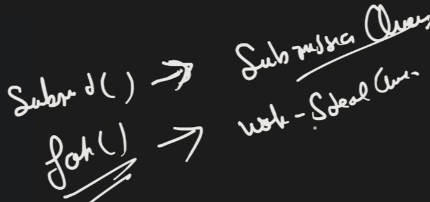 Submit() → Submission Queue
fork() → work-Steal Queue